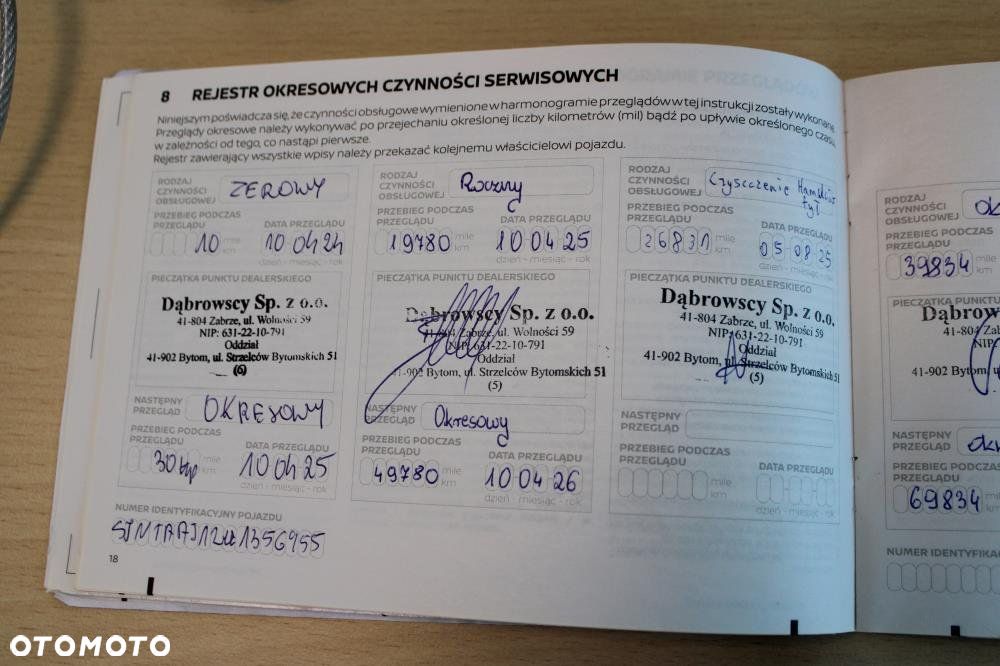 8 REJESTR OKRESOWYCH CZYNNOŚCI SERWISOWYCH
Niniejszym poświadcza się, że czynności obsługowe wymienione w harmonogramie przeglądów w tej instrukcji zostały wykonane.
Przeglądy okresowe należy wykonywać po przejechaniu określonej liczby kilometrów (mil) bądź po upływie określonego czasu,
w zależności od tego, co nastąpi pierwsze.
Rejestr zawierający wszystkie wpisy należy przekazać kolejnemu właścicielowi pojazdu.
RODZAJ CZYNNOŚCI OBSŁUGOWEJ ZEROWY
PRZEBIEG PODCZAS PRZEGLĄDU DATA PRZEGLĄDU
10 mile km 10 04 24
PIECZĄTKA PUNKTU DEALERSKIEGO
Dąbrowscy Sp. z o.o.
41-804 Zabrze, ul. Wolności 59
NIP: 631-22-10-791
Oddział
41-902 Bytom, ul. Strzelców Bytomskich 51
(6)
NASTĘPNY PRZEGLĄD OKRESOWY
PRZEBIEG PODCZAS PRZEGLĄDU DATA PRZEGLĄDU
30 mile km 10 04 25
dzień - miesiąc - rok
NUMER IDENTYFIKACYJNY POJAZDU
18
RODZAJ CZYNNOŚCI OBSŁUGOWEJ Roczny
PRZEBIEG PODCZAS PRZEGLĄDU DATA PRZEGLĄDU
19780 mile km 10 04 25
dzień - miesiąc - rok
PIECZĄTKA PUNKTU DEALERSKIEGO
Dąbrowscy Sp. z o.o.
41-804 Zabrze, ul. Wolności 59
NIP: 631-22-10-791
Oddział
41-902 Bytom, ul. Strzelców Bytomskich 51
(5)
NASTĘPNY PRZEGLĄD Okresowy
PRZEBIEG PODCZAS PRZEGLĄDU DATA PRZEGLĄDU
49780 mile km 10 04 26
dzień - miesiąc - rok
RODZAJ CZYNNOŚCI OBSŁUGOWEJ Czyszczenie Hamulców tył
PRZEBIEG PODCZAS PRZEGLĄDU DATA PRZEGLĄDU
26831 mile km 05 08 25
dzień - miesiąc - rok
PIECZĄTKA PUNKTU DEALERSKIEGO
Dąbrowscy Sp. z o.o.
41-804 Zabrze, ul. Wolności 59
NIP: 631-22-10-791
Oddział
41-902 Bytom, ul. Strzelców Bytomskich 51
(5)
NASTĘPNY PRZEGLĄD
PRZEBIEG PODCZAS PRZEGLĄDU DATA PRZEGLĄDU
mile km
dzień - miesiąc - rok
RODZAJ CZYNNOŚCI OBSŁUGOWEJ
PRZEBIEG PODCZAS PRZEGLĄDU
39834 mile km
PIECZĄTKA PUNKTU
Dąbrow
41-804
41-902 Bytom,
NASTĘPNY PRZEGLĄD
PRZEBIEG PODCZAS PRZEGLĄDU
69834 mile km
NUMER IDENTYFIKAC
OTOMOTO